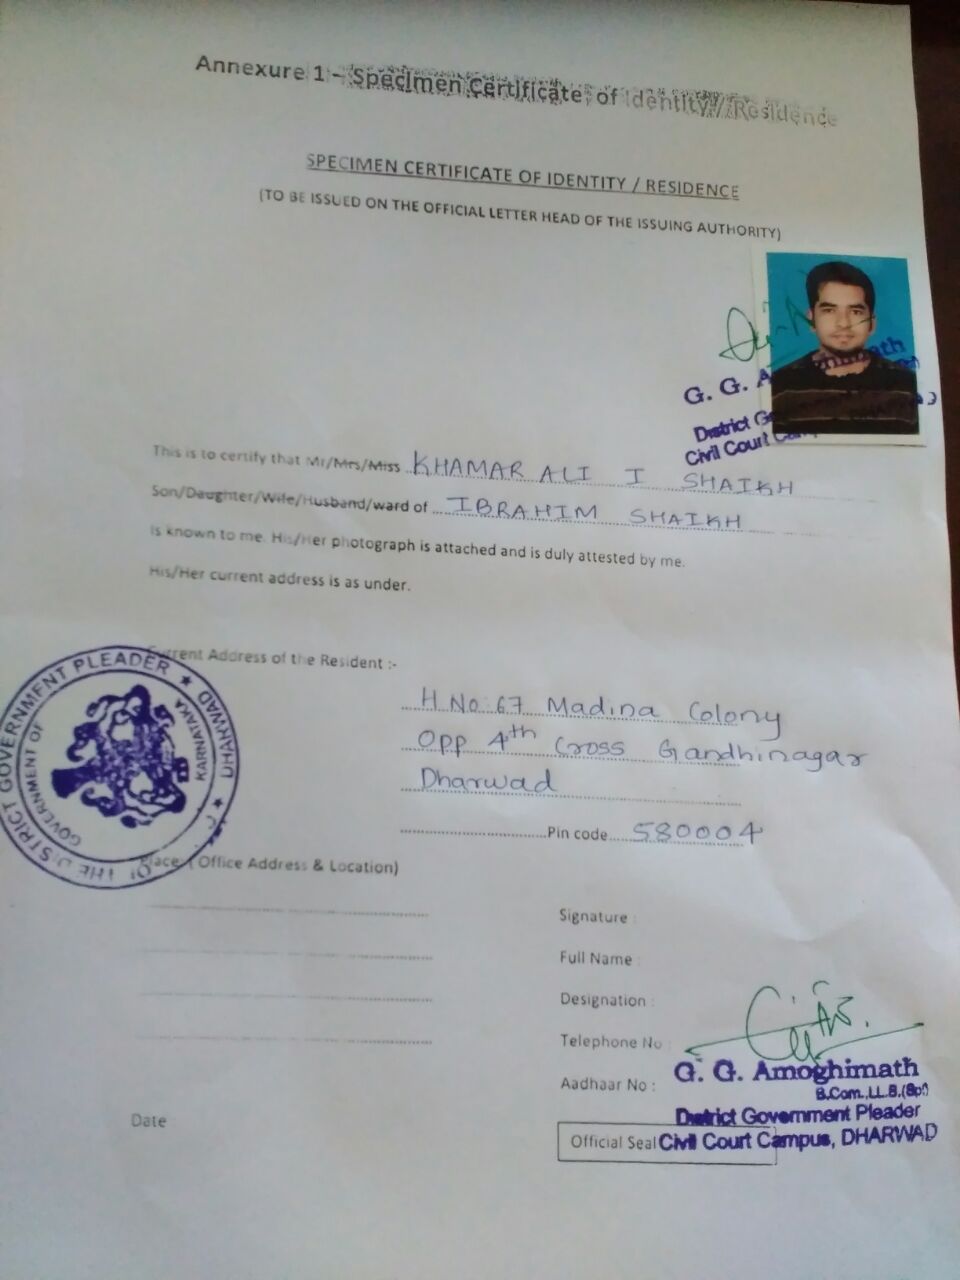 Annexure 1 – Specimen Certificate of Identity / Residence
SPECIMEN CERTIFICATE OF IDENTITY / RESIDENCE
(TO BE ISSUED ON THE OFFICIAL LETTER HEAD OF THE ISSUING AUTHORITY)
G. G. Amoghimath
District
Civil Court
This is to certify that Mr/Mrs/Miss KHAMAR ALI I SHAIKH
Son/Daughter/Wife/Husband/ward of IBRAHIM SHAIKH
Is known to me. His/Her photograph is attached and is duly attested by me.
His/Her current address is as under.
Current Address of the Resident :-
H No: 67 Madina Colony
Opp 4th Cross Gandhinagar
Dharwad
Pin code 580004
OF THE DISTRICT GOVERNMENT PLEADER ★ DHARWAD ★
GOVERNMENT OF KARNATAKA
Place ( Office Address & Location)
Signature :
Full Name :
Designation :
Telephone No :
Aadhaar No :
G. G. Amoghimath
B.Com.,LL.B.(Spl)
District Government Pleader
Date
Official Seal Civil Court Campus, DHARWAD